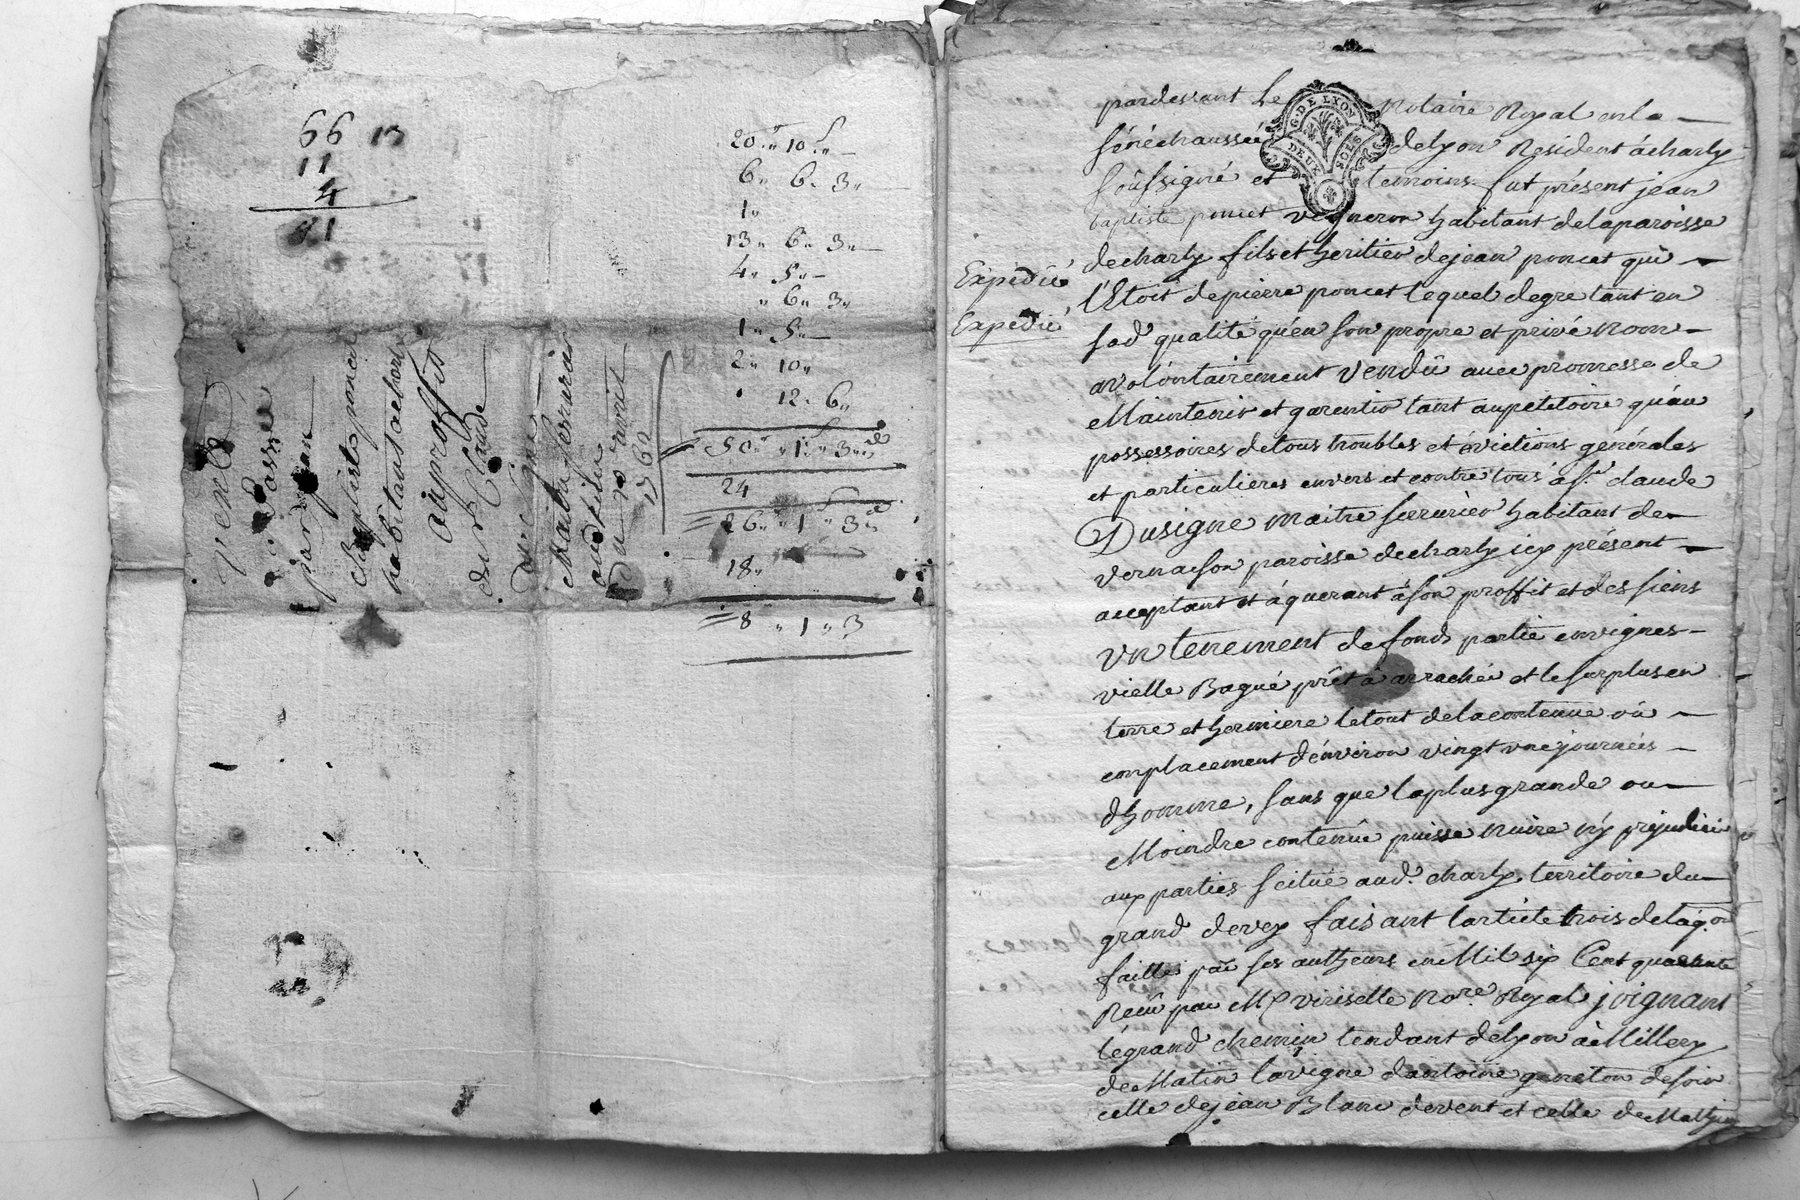 66 13
11
4
81
20.,, 10 ,,
6,, 6,, 3,,
1,,
13,, 6,, 3,,
4,, 5,,
,, 6,, 3,,
1,, 5,,
2,, 10,,
12,, 6,,
50 ,, 1 ,, 3 d
24
26 ,, 1 ,, 3 d
18,,
8 ,, 1 ,, 3
Vente
passée
par jean
Baptiste poncet
habitant de charly
au proffit
du Sr Claude
Dusigne
Maitre serrurier
audit lieu
Du avril
1762
Expedié
Expedié
G. DE LYON
DEUX SOLS
pardevant Le Notaire Royal en la
sénéchaussée de lyon Resident á charly
soussigné et temoins fut présent jean
baptiste poncet vigneron habitant de la paroisse
de charly fils et heritier de jean poncet qui
l'Etoit de pierre poncet lequel de gré tant en
sad. qualité qu'en son propre et privé nom
a volontairement vendu avec promesse de
Maintenir et garentir tant au petitoire qu'au
possessoires de tous troubles et évictions genérales
et particulieres envers et contre tous á sr. claude
Dusigne maitre serrurier habitant de
vernaison paroisse de charly icy présent
acceptant et áquerant á son proffit et des siens
un tenement de fonds partie en vignes
vielle Bagué prêt á arracher et le surplus en
terre et hermiere le tout de la contenue ou
emplacement d'environ vingt une journées
d'homme, sans que la plus grande ou
Moindre contenue puisse nuire ny prejudicier
aux parties scitué aud. charly territoire du
grand devey faisant l'article trois de la
faitte par ses autheurs en Mil six Cent quarante
Reçu par Me viriselle Nore Royal joignant
le grand chemin tendant de lyon á Millery
de Matin la vigne d'antoine de soir
celle de jean Blanc de vent et celle de Mathieu